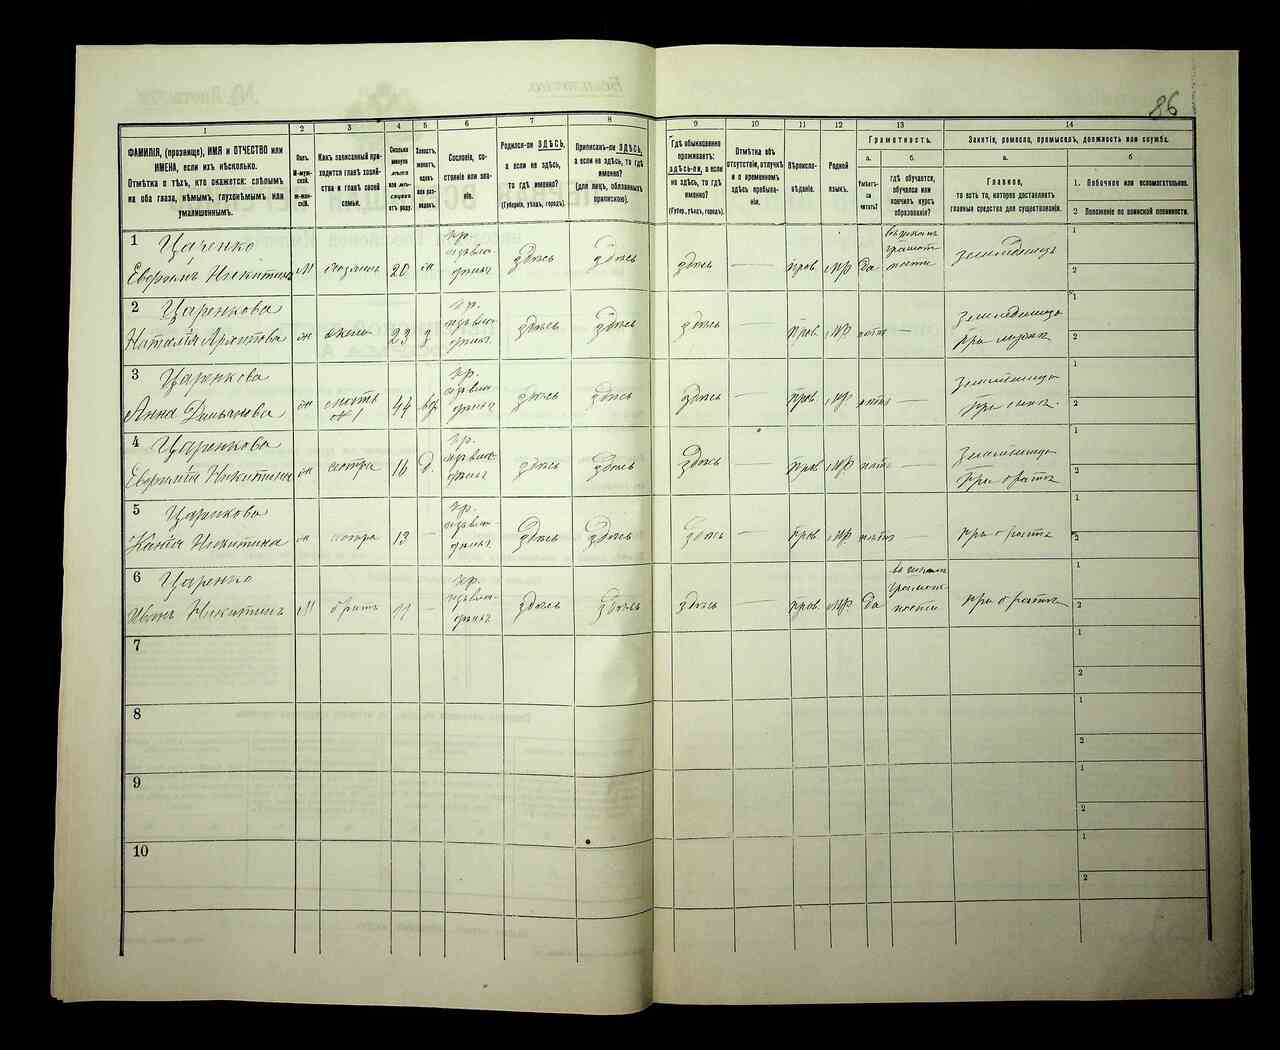 86
1
2
3
4
5
6
7
8
9
10
11
12
13
14
ФАМИЛІЯ, (прозвище), ИМЯ и ОТЧЕСТВО или
ИМЕНА, если ихъ нѣсколько.
Отмѣтка о тѣхъ, кто окажется: слѣпымъ
на оба глаза, нѣмымъ, глухонѣмымъ или
умалишеннымъ.
Полъ.
М-мужской.
Ж-женскій.
Какъ записанный приходится главѣ хозяйства и главѣ своей семьи.
Сколько минуло лѣтъ или мѣсяцевъ отъ роду.
Холостъ, женатъ, вдовъ или разведенъ.
Сословіе, состояніе или званіе.
Родился-ли ЗДѢСЬ,
а если не здѣсь,
то гдѣ именно?
(Губернія, уѣздъ, городъ).
Приписанъ-ли ЗДѢСЬ,
а если не здѣсь, то гдѣ
именно?
(для лицъ, обязанныхъ
припискою).
Гдѣ обыкновенно
проживаетъ:
здѣсь-ли, а если
не здѣсь, то гдѣ
именно?
(Губер., уѣздъ, городъ).
Отмѣтка объ
отсутствіи, отлучкѣ
и о временномъ
здѣсь пребываніи.
Вѣроисповѣданіе.
Родной
языкъ.
Грамотность.
а.
б.
Умѣетъ-ли
читать?
гдѣ обучается,
обучался или
кончилъ курсъ
образованія?
Занятіе, ремесло, промыселъ, должность или служба.
а.
б
Главное,
то есть то, которое доставляетъ
главныя средства для существованія.
1. Побочное или вспомогательное.
2 Положеніе по воинской повинности.
1
Царенко
Евфремъ Никитинъ
М
хозяинъ
20
ж
кр.
здѣсь
здѣсь
здѣсь
—
прав
Мр
да
земледѣлецъ
1
2
2
Царенкова
Наталія Архипова
ж
жена
23
з
кр.
здѣсь
здѣсь
здѣсь
—
прав
Мр
нѣтъ
—
при мужѣ
1
2
3
Царенкова
Анна Демьянова
ж
мать
№ 1
44
вд
кр.
здѣсь
здѣсь
здѣсь
—
прав
Мр
нѣтъ
—
при сынѣ
1
2
4
Царенкова
Евфимія Никитина
ж
сестра
16
д
кр.
здѣсь
здѣсь
здѣсь
—
прав
Мр
нѣтъ
—
при братѣ
1
2
5
Царенкова
Ксенія Никитина
ж
сестра
13
—
кр.
здѣсь
здѣсь
здѣсь
—
прав
Мр
нѣтъ
—
при братѣ
1
2
6
Царенко
Иванъ Никитинъ
М
братъ
11
—
кр.
здѣсь
здѣсь
здѣсь
—
прав.
Мр.
да
при братѣ
1
2
7
1
2
8
1
2
9
1
2
10
1
2